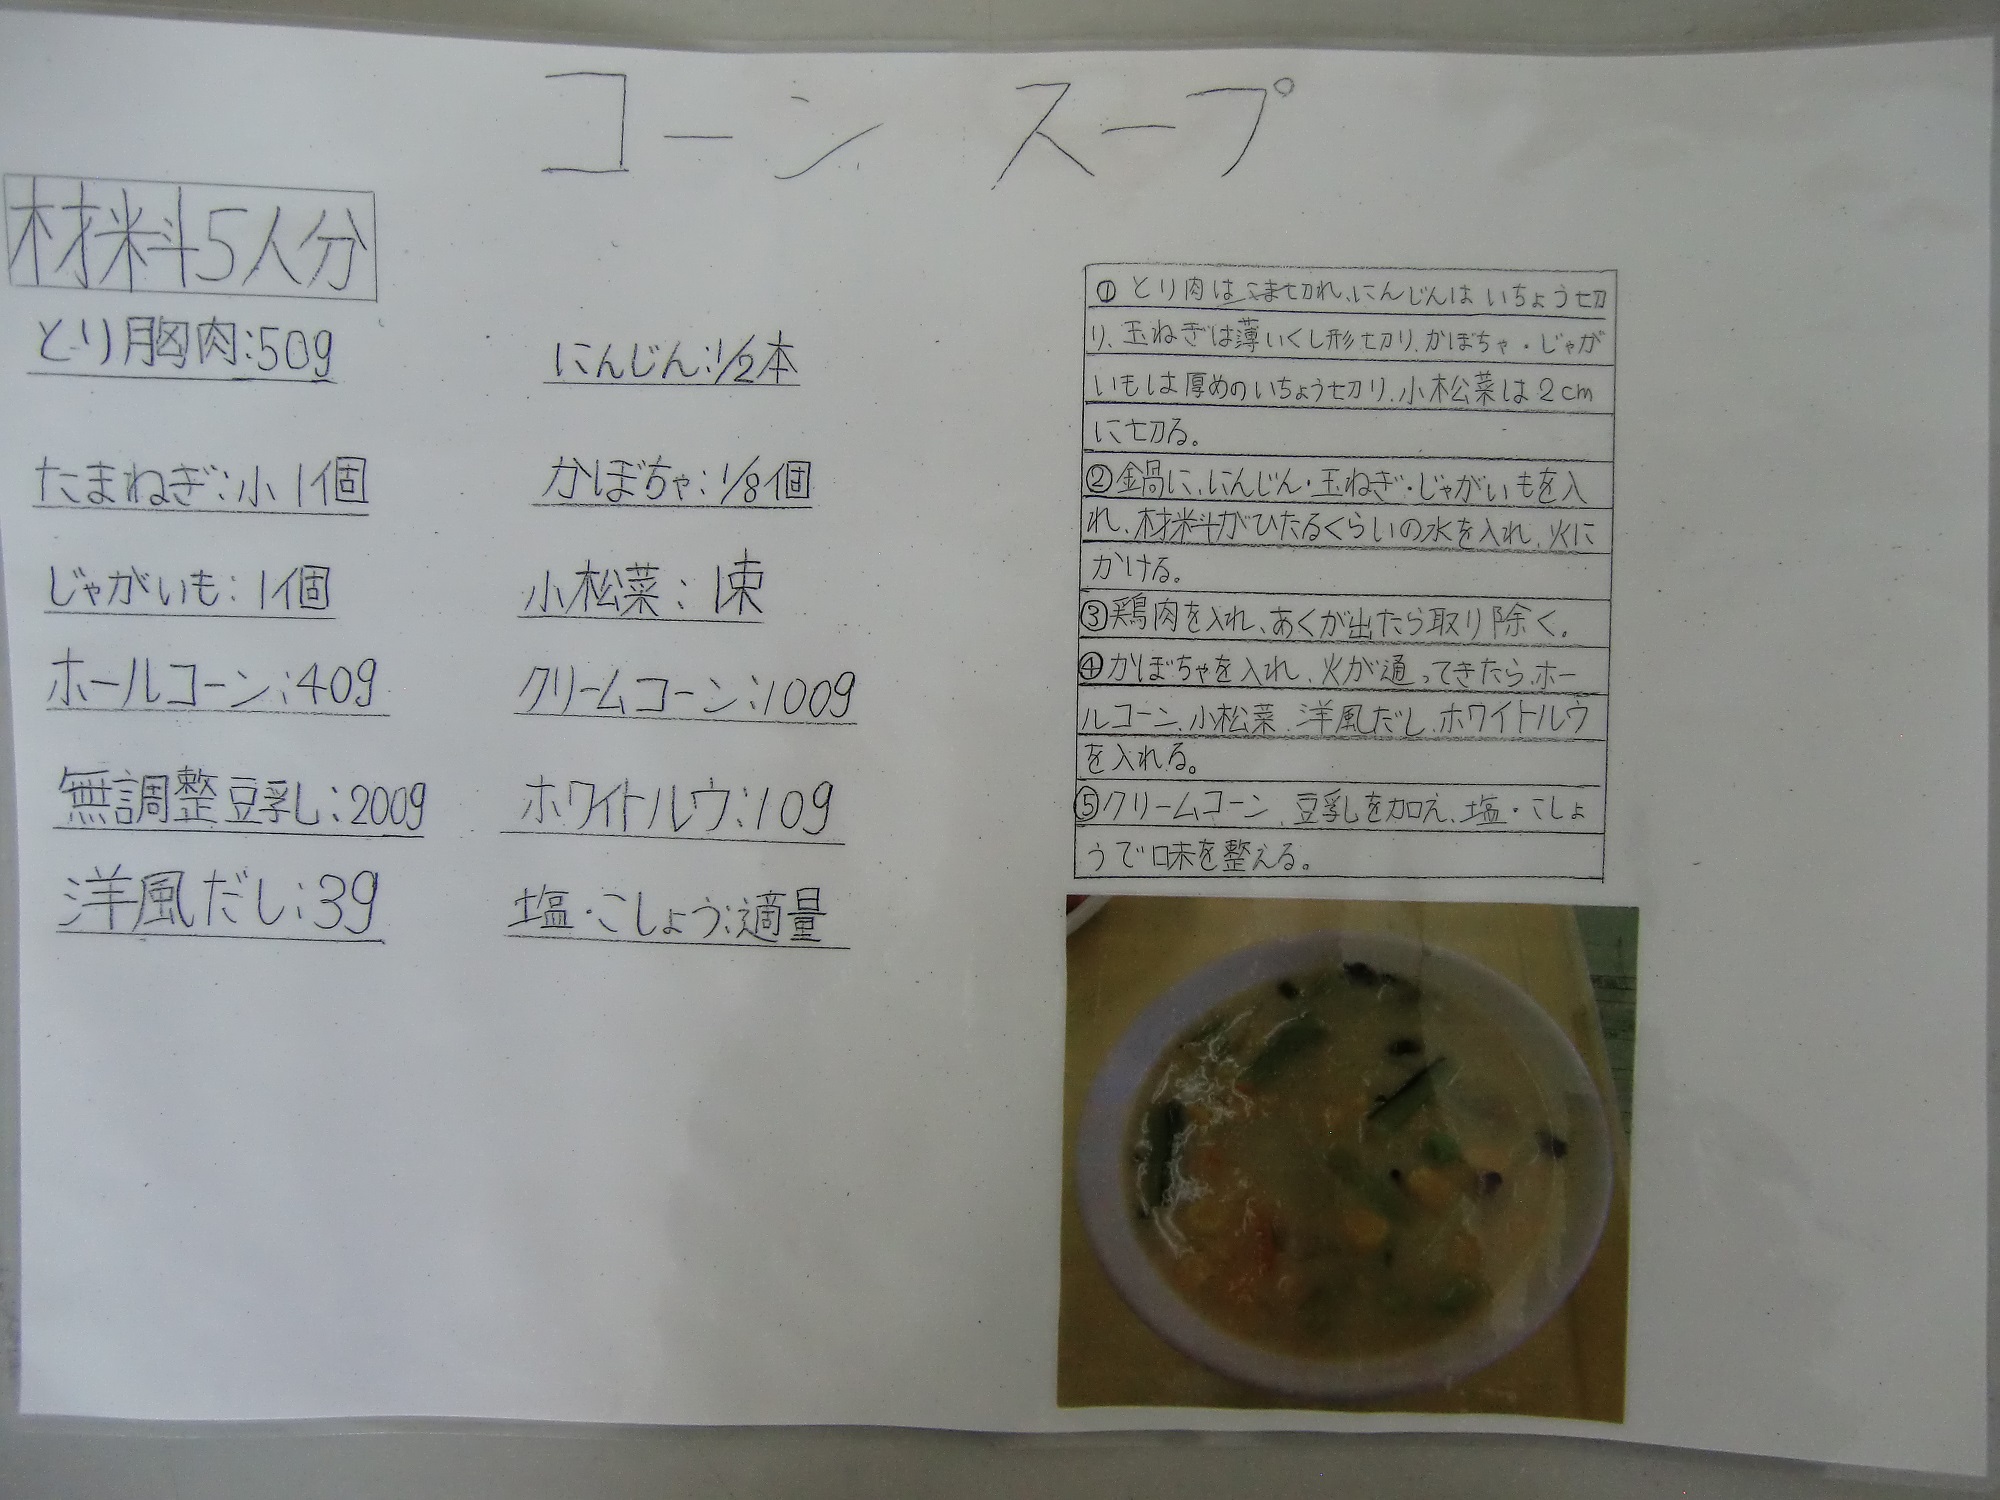 コーン スープ
材料5人分
とり胸肉:50g
にんじん:1/2本
たまねぎ:小1個
かぼちゃ:1/8個
じゃがいも:1個
小松菜:1束
ホールコーン:40g
クリームコーン:100g
無調整豆乳:200g
ホワイトルウ:10g
洋風だし:3g
塩・こしょう:適量
①とり肉はこま切れ、にんじんはいちょう切
り、玉ねぎは薄いくし形切り、かぼちゃ・じゃが
いもは厚めのいちょう切り、小松菜は2cm
に切る。
②鍋に、にんじん・玉ねぎ・じゃがいもを入
れ、材料がひたるくらいの水を入れ、火に
かける。
③鶏肉を入れ、あくが出たら取り除く。
④かぼちゃを入れ、火が通ってきたら、ホー
ルコーン、小松菜、洋風だし、ホワイトルウ
を入れる。
⑤クリームコーン、豆乳を加え、塩・こしょ
うで味を整える。